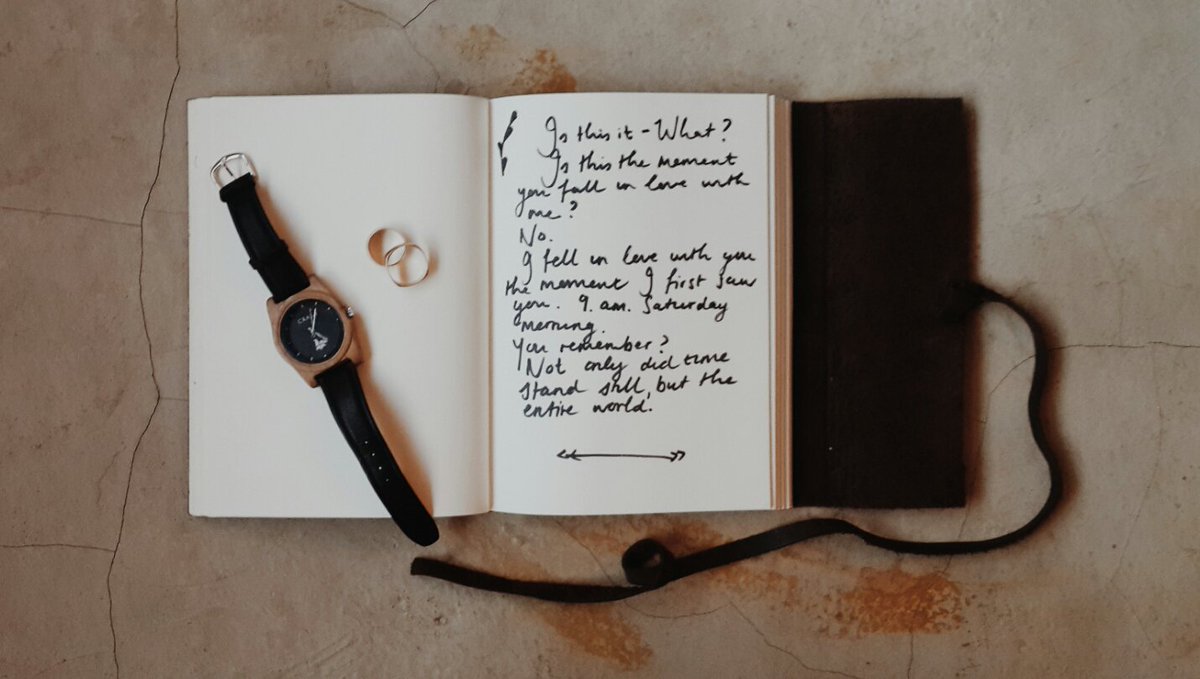 Is this it - What?
Is this the moment
you fall in love with
me?
No.
I fell in love with you
the moment I first saw
you. 9. am. Saturday
morning.
You remember?
Not only did time
stand still, but the
entire world.